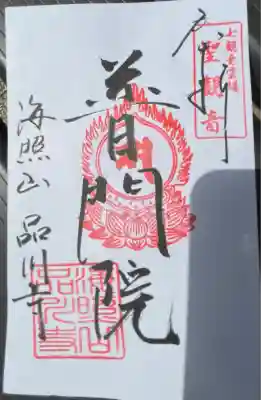 奉拝
七観音霊場
聖観音
普門院
海照山 品川寺